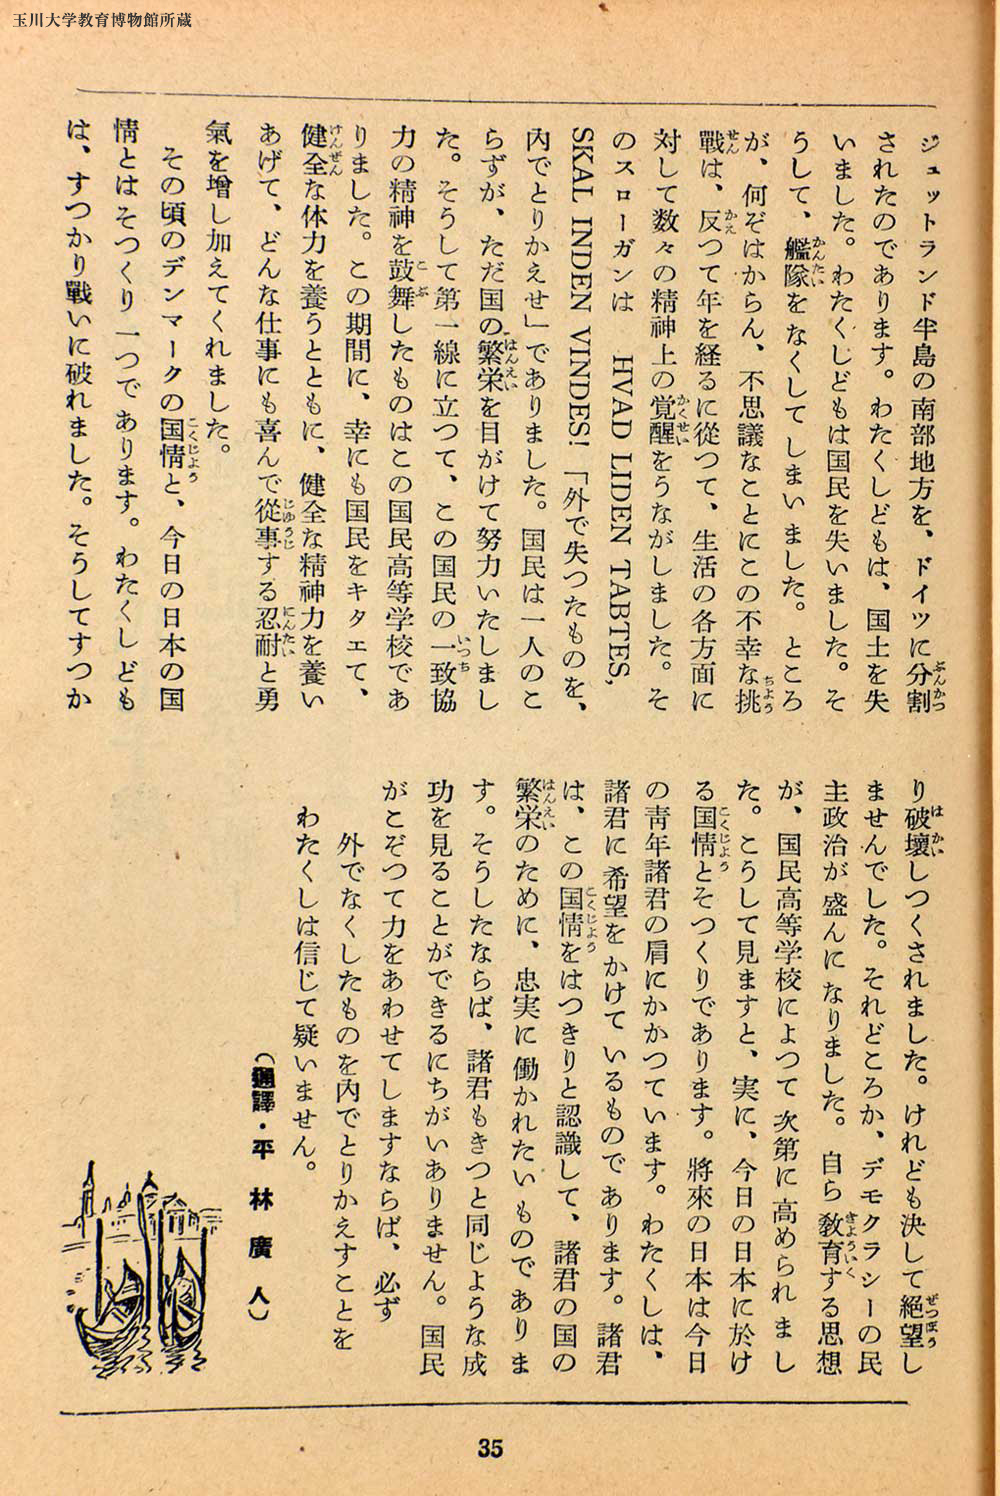 玉川大学教育博物館所蔵
ジュットランド半島の南部地方を、ドイツに分割
されたのであります。わたくしどもは、国土を失
いました。わたくしどもは国民を失いました。そ
うして、艦隊をなくしてしまいました。ところ
が、何ぞはからん、不思議なことにこの不幸な挑
戰は、反つて年を経るに從つて、生活の各方面に
対して数々の精神上の覚醒をうながしました。そ
のスローガンは HVAD LIDEN TABTES,
SKAL INDEN VINDES! 「外で失つたものを、
内でとりかえせ」でありました。国民は一人のこ
らずが、ただ国の繁栄を目がけて努力いたしまし
た。そうして第一線に立つて、この国民の一致協
力の精神を鼓舞したものはこの国民高等学校であ
りました。この期間に、幸にも国民をキタエて、
健全な体力を養うとともに、健全な精神力を養い
あげて、どんな仕事にも喜んで從事する忍耐と勇
氣を増し加えてくれました。
その頃のデンマークの国情と、今日の日本の国
情とはそつくり一つであります。わたくしども
は、すつかり戰いに破れました。そうしてすつか
り破壞しつくされました。けれども決して絶望し
ませんでした。それどころか、デモクラシーの民
主政治が盛んになりました。自ら敎育する思想
が、国民高等学校によつて次第に高められまし
た。こうして見ますと、実に、今日の日本に於け
る国情とそつくりであります。將來の日本は今日
の青年諸君の肩にかかつています。わたくしは、
諸君に希望をかけているものであります。諸君
は、この国情をはつきりと認識して、諸君の国の
繁栄のために、忠実に働かれたいものでありま
す。そうしたならば、諸君もきつと同じような成
功を見ることができるにちがいありません。国民
がこぞつて力をあわせてしますならば、必ず
外でなくしたものを内でとりかえすことを
わたくしは信じて疑いません。
（通譯・平林廣人）
35